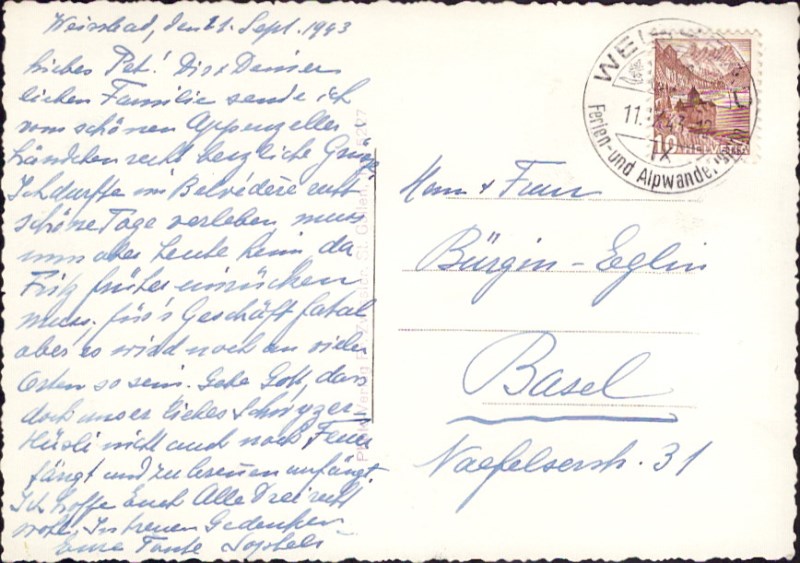 Weissbad, den 21. Sept. 1943
Liebes Pet! Dir & Deiner
lieben Familie sende ich
vom schönen Appenzeller
Ländchen recht herzliche Grüsse
Ich durfte im Belvédère recht
schöne Tage verleben muss
nun aber heute heim da
Fritz früher einrücken
muss, fürs Geschäft fatal
aber es wird noch an vielen
Orten so sein. Gebe Gott, dass
doch unser liebes Schwyzer-
Hüsli nicht auch noch Feuer
fängt und zu brennen anfängt.
Ich hoffe Euch Alle Drei recht
wohl. In treuem Gedenken
Eure Tante
Ferien- und Alpwander
10 HELVETIA
Herrn & Frau
Bürgin-Eglin
Basel
Naefelserstr. 31